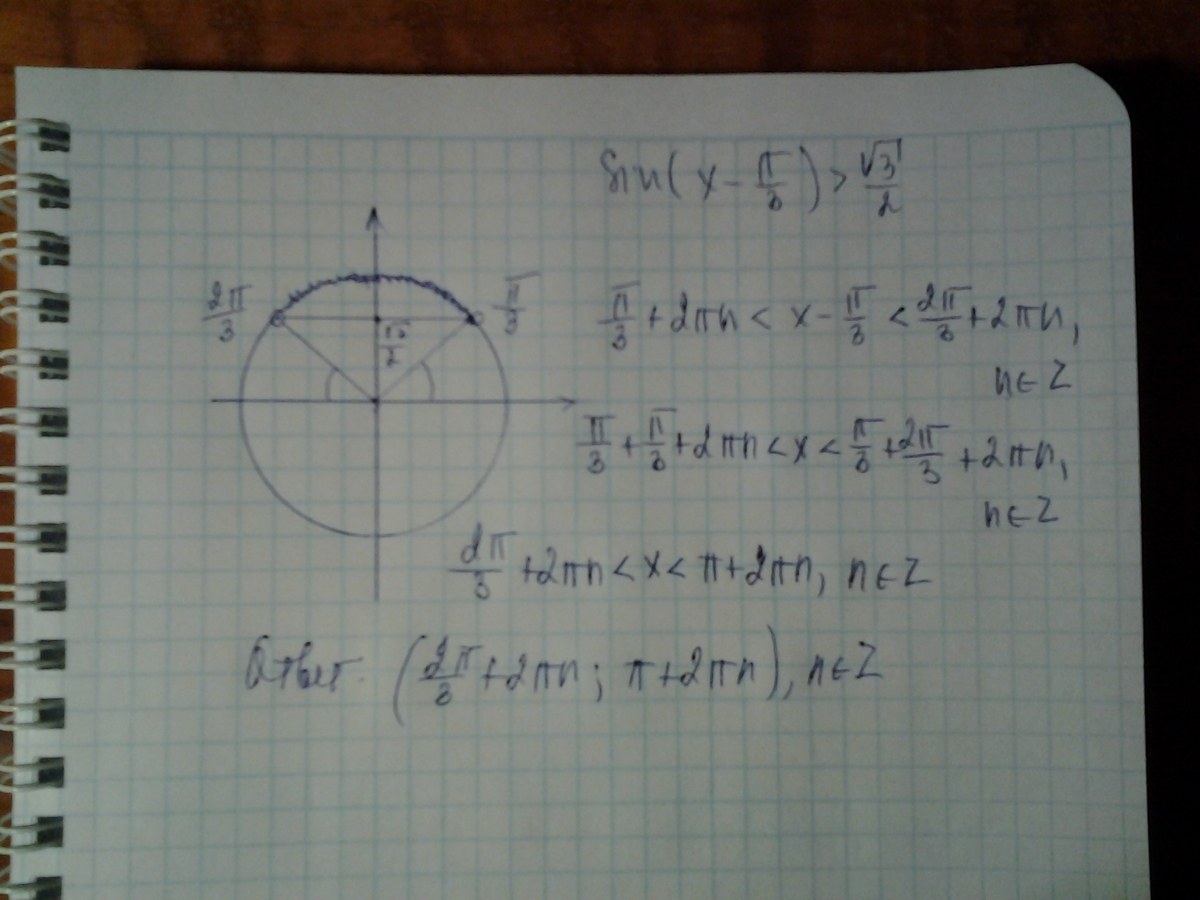 sin(x - π/3) > √3/2
2π/3 π/3
√3/2
π/3 + 2πn < x - π/3 < 2π/3 + 2πn,
n∈Z
π/3 + π/3 + 2πn < x < π/3 + 2π/3 + 2πn,
n∈Z
2π/3 + 2πn < x < π + 2πn, n∈Z
Ответ. (2π/3 + 2πn; π + 2πn), n∈Z